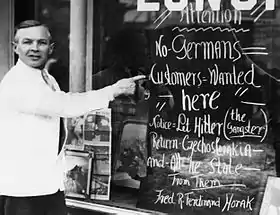 LUNCH
Attention
No-Germans
Customers=Wanted
here
Notice=Let Hitler (the Gangster)
Return-Czechoslovakia-
and-All he Stole-
From Them-
Fred R. Ferdinand Horak